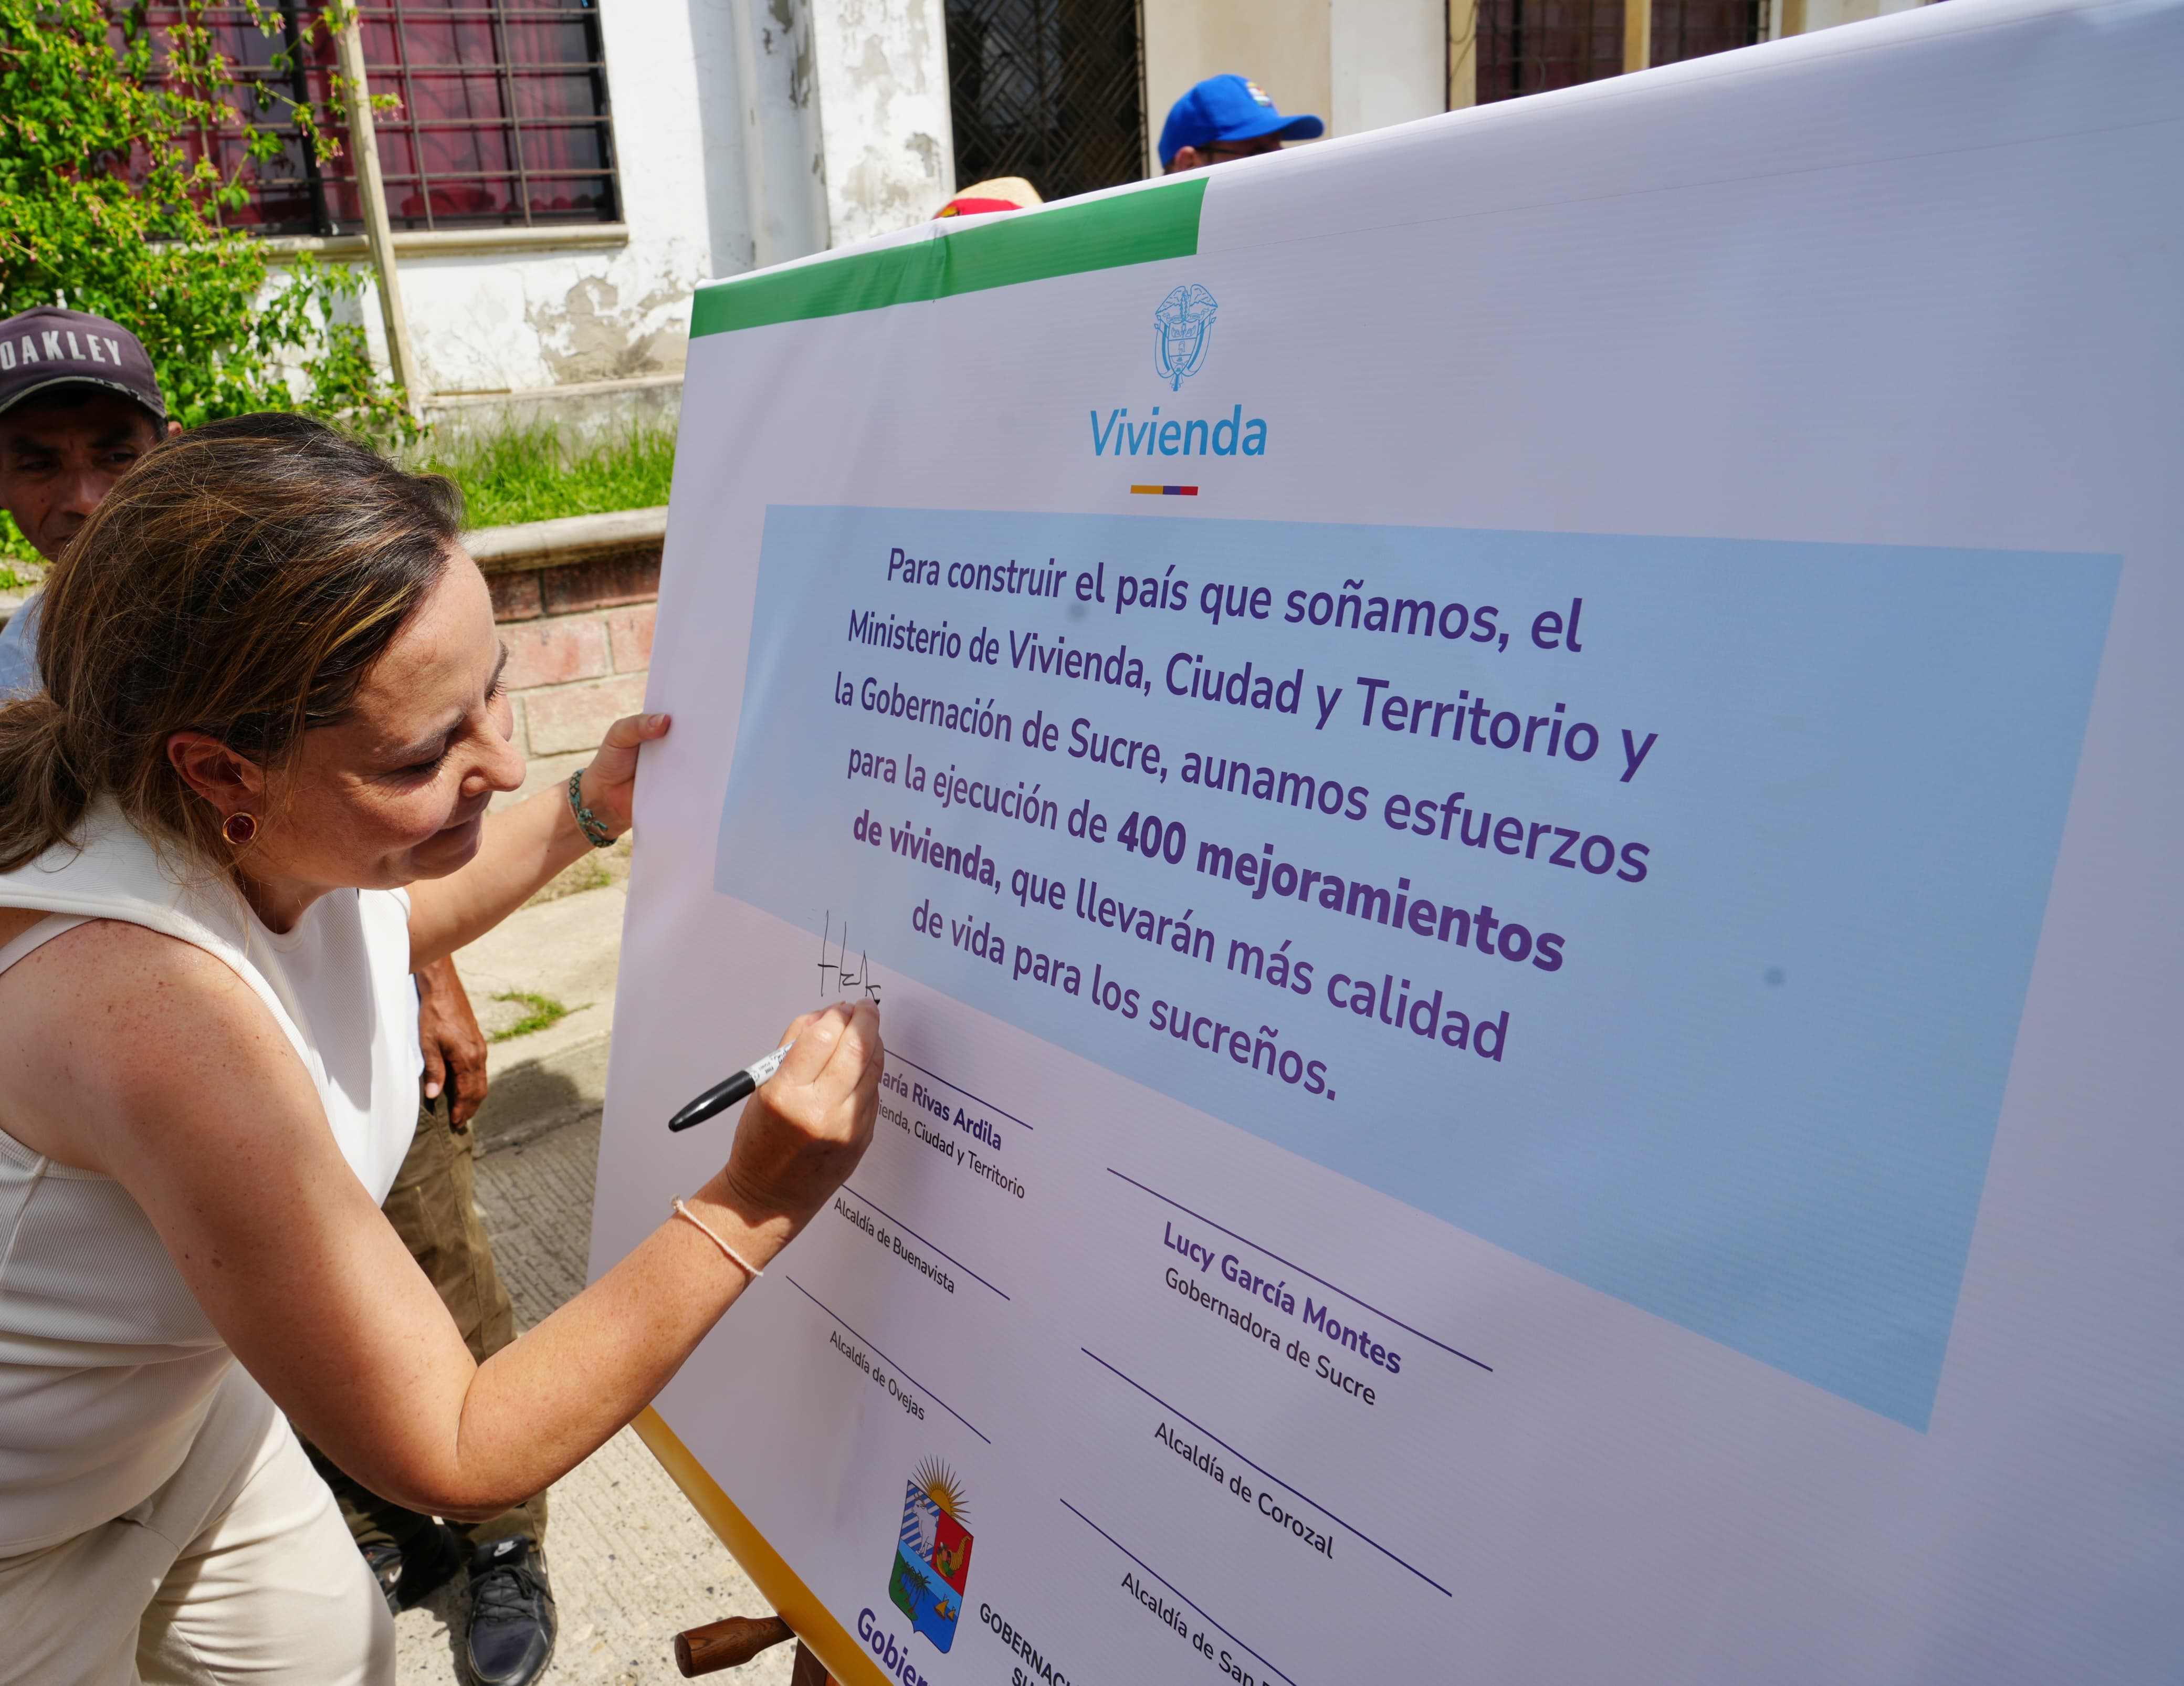 OAKLEY
Vivienda
Para construir el país que soñamos, el
Ministerio de Vivienda, Ciudad y Territorio y
la Gobernación de Sucre, aunamos esfuerzos
para la ejecución de 400 mejoramientos
de vivienda, que llevarán más calidad
de vida para los sucreños.
Rivas Ardila
Ciudad y Territorio
Lucy García Montes
Gobernadora de Sucre
Alcaldía de Buenavista
Alcaldía de Corozal
Alcaldía de Ovejas
Alcaldía de San